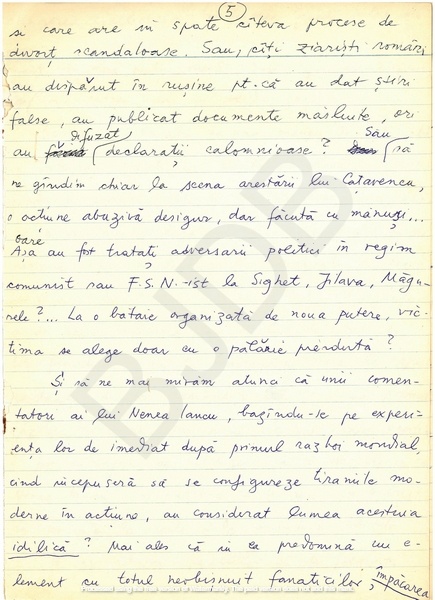 5
și care are în spate câteva procese de
divorț scandaloase. Sau, câți ziariști români
au dispărut în rușine pt. că au dat știri
false, au publicat documente măsluite, ori
au difuzat declarații calomnioase? Sau să
ne gândim chiar la scena arestării lui Cațavencu,
o acțiune abuzivă desigur, dar făcută cu mănuși...
Așa oare au fost tratați adversarii politici în regim
comunist sau F.S.N.-ist la Sighet, Jilava, Măgu-
rele?... La o bătaie organizată de noua putere, vic-
tima se alege doar cu o pălărie pierdută?
Și să ne mai mirăm atunci că unii comen-
tatori ai lui Nenea Iancu, bazîndu-se pe experi-
ența lor de imediat după primul război mondial,
cînd începuseră să se configureze tiraniile mo-
derne în acțiune, au considerat lumea acestuia
idilică? Mai ales că în ea predomină un e-
lement cu totul neobișnuit fanaticilor, împăcarea
BJDB